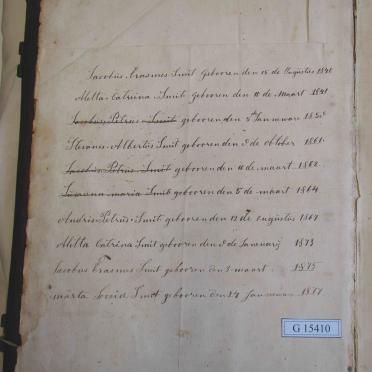 Jacobus Erasmus Smit Gebooren den 15 de Augustus 1840
Aletta Catrina Smit gebooren den 11 de Maart 1841
Jacobus Petrus Smit gebooren den 5 de Januware
Stevanis Albertus Smit gebooren den 9 de October 1861
Jacobus Petrus Smit gebooren den 11 de maart 1862
Susanna maria Smit gebooren den 5 de maart 1864
Andris Petrus Smit gebooren den 12 de augustus 1867
Aletta Catrina Smit gebooren den 9 de Januarij 1873
Jacobus Erasmus Smit gebooren den 3 maart 1875
marta Smit gebooren den 24 1877
G 15410